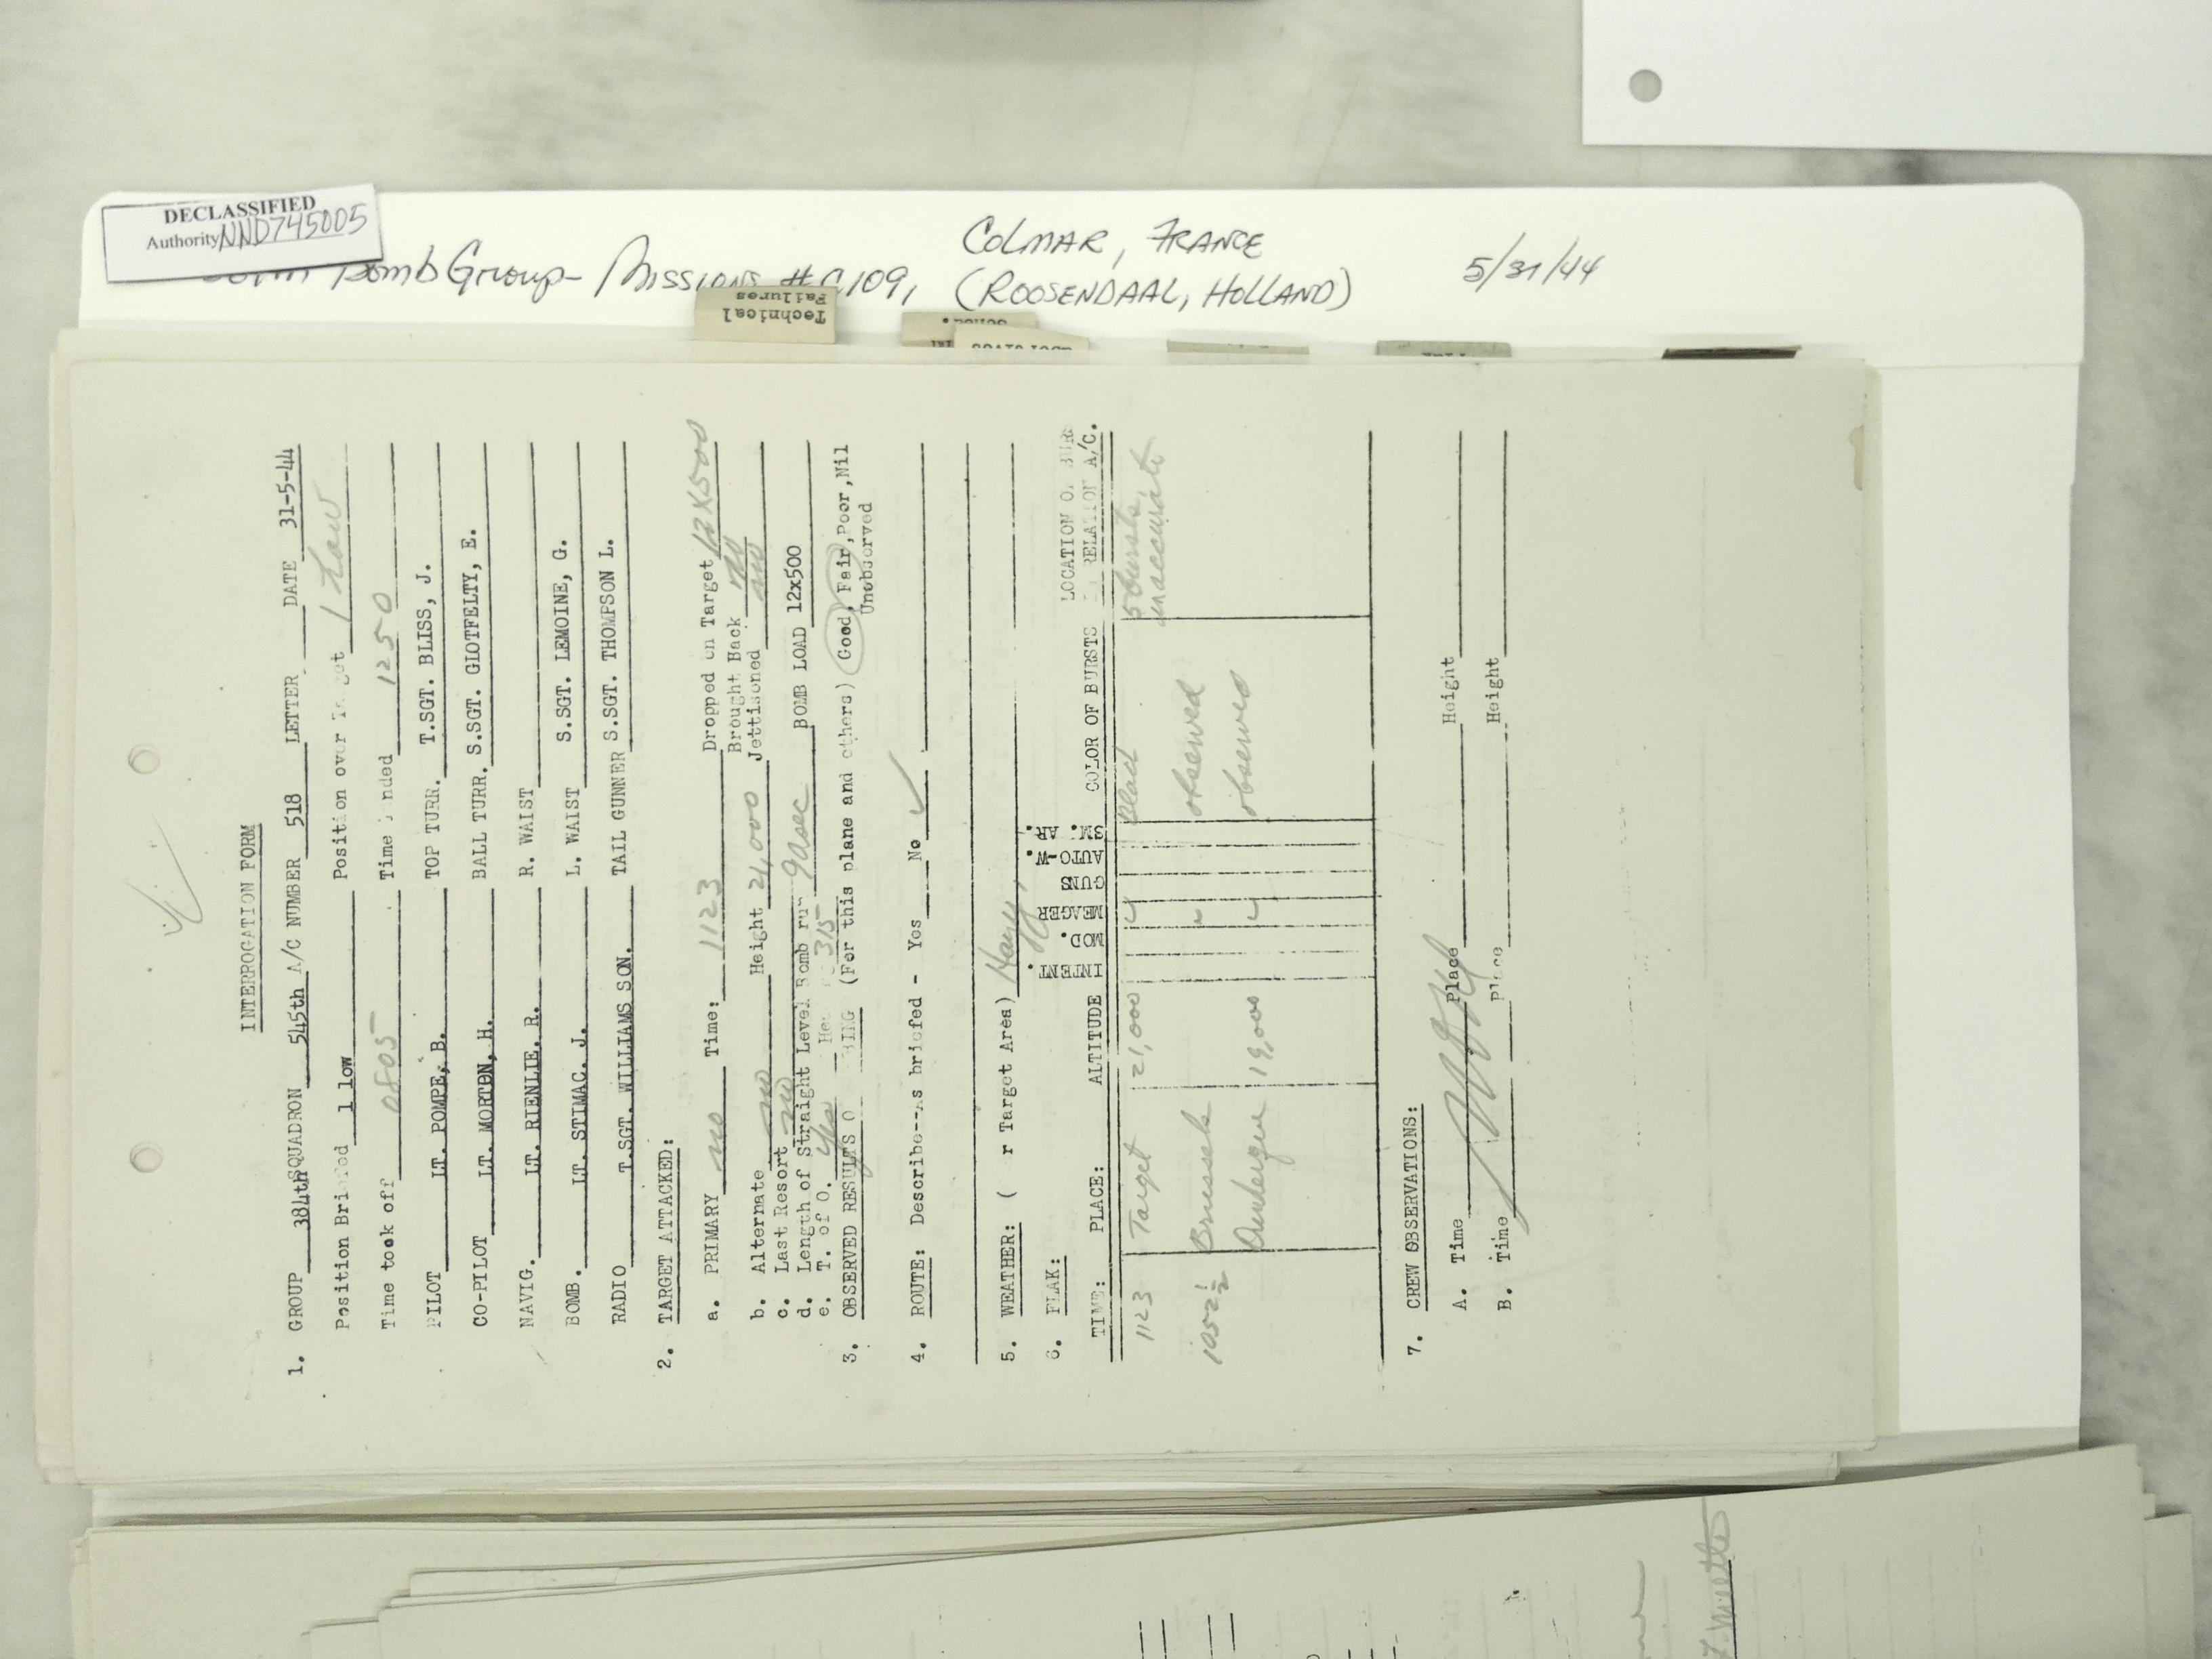 DECLASSIFIED
Authority NND745005
Bomb Group - Missions #109,
COLMAR, FRANCE
(ROOSENDAAL, HOLLAND)
5/31/44
Technical
Failures
INTERROGATION FORM
1. GROUP 384th SQUADRON 545th A/C NUMBER 518 LETTER DATE 31-5-44
Position Briefed 1 low Position over Target 1 Low
Time took off 0805 Time landed 1250
PILOT LT. POMPE, B. TOP TURR. T.SGT. BLISS, J.
CO-PILOT LT. MORTON, H. BALL TURR. S.SGT. GLOTFELTY, E.
NAVIG. LT. RIENLIE, R. R. WAIST
BOMB. LT. STIMAC. J. L. WAIST S.SGT. LEMOINE, G.
RADIO T.SGT. WILLIAMS SON. TAIL GUNNER S.SGT. THOMPSON L.
2. TARGET ATTACKED:
a. PRIMARY no Time: 1123 Dropped on Target 12X500
Brought Back no
b. Alternate no Height 21,000 Jettisoned no
c. Last Resort no
d. Length of Straight Level Bomb run 90 sec BOMB LOAD 12x500
e. T. of O. Yes 315
3. OBSERVED RESULTS O BING (For this plane and others) Good, Fair, Poor, Nil
Unobserved
4. ROUTE: Describe--As briefed - Yes No ✓
5. WEATHER: ( r Target Area) Hazy
6. FLAK:
TIME: PLACE: ALTITUDE INTENT. MOD. MEAGER GUNS AUTO-W. SM. AR. COLOR OF BURSTS LOCATION OF BURS RELATION A/C.
1123 Target 21,000 5 bursts
inaccurate
1052½ Brussels observed
19,000 observed
7. CREW OBSERVATIONS:
A. Time Place Height
B. Time Place Height